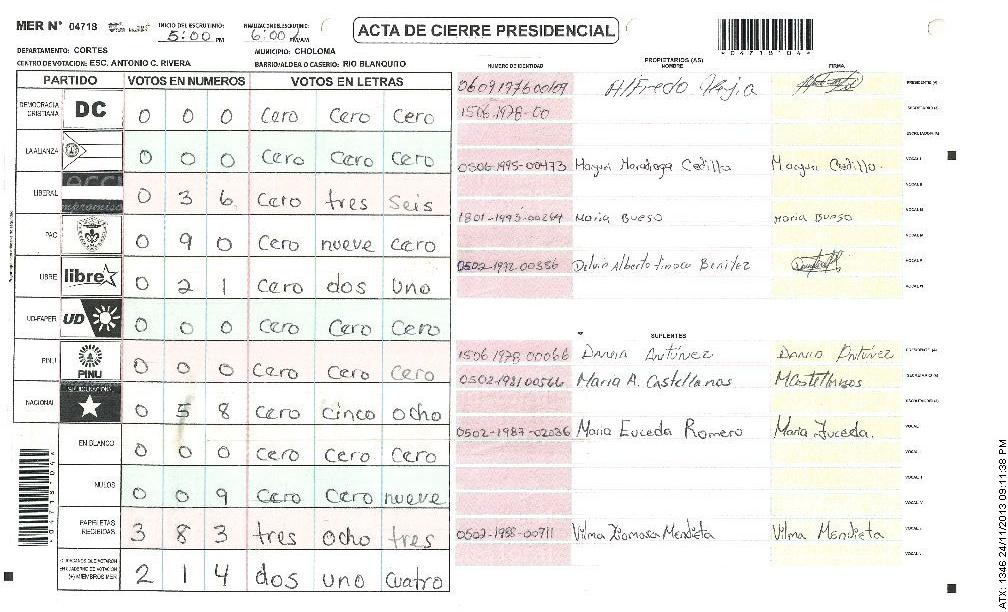 MER N° 04718 INICIO DEL ESCRUTINIO: 5:00 PM FINALIZACION DEL ESCRUTINIO: 6:00 PM/AM
ACTA DE CIERRE PRESIDENCIAL
*04718104*
DEPARTAMENTO: CORTES MUNICIPIO: CHOLOMA
CENTRO DE VOTACION: ESC. ANTONIO C. RIVERA BARRIO/ALDEA O CASERIO: RIO BLANQUITO
PARTIDO VOTOS EN NUMEROS VOTOS EN LETRAS
DEMOCRACIA CRISTIANA DC 0 0 0 Cero Cero Cero
LA ALIANZA 0 0 0 Cero Cero Cero
LIBERAL 0 3 6 Cero tres Seis
PAC 0 9 0 Cero nueve cero
LIBRE libre 0 2 1 Cero dos Uno
UD-FAPER UD 0 0 0 Cero Cero Cero
PINU PINU 0 0 0 Cero Cero Cero
NACIONAL 0 5 8 Cero cinco ocho
EN BLANCO 0 0 0 Cero Cero Cero
NULOS 0 0 9 Cero Cero nueve
PAPELETAS RECIBIDAS 3 8 3 tres ocho tres
CIUDADANOS QUE VOTARON EN CUADERNO DE VOTACION (+) MIEMBROS MER 2 1 4 dos uno cuatro
*04718104*
PROPIETARIOS (AS)
NUMERO DE IDENTIDAD NOMBRE FIRMA
Alfredo PRESIDENTE (A)
1506-1978-00 SECRETARIO (A)
ESCRUTADOR (A)
0506-1995-00473 Cedillo VOCAL I
VOCAL II
1801-1993-00264 Maria Bueso Maria Bueso VOCAL III
VOCAL IV
0502-1972-00386 Alberto Benitez VOCAL V
VOCAL VI
SUPLENTES
1506 1978 00066 Antúnez Antúnez PRESIDENTE (A)
0502-1981 00566 Maria A. Castellanos MCastellanos SECRETARIO (A)
ESCRUTADOR (A)
0502-1987-02036 Maria Euceda Romero Maria Euceda.
0502-1988-00711 Vilma Mendieta Vilma Mendieta
ATX: 1346 24/11/2013 09:11:38 PM